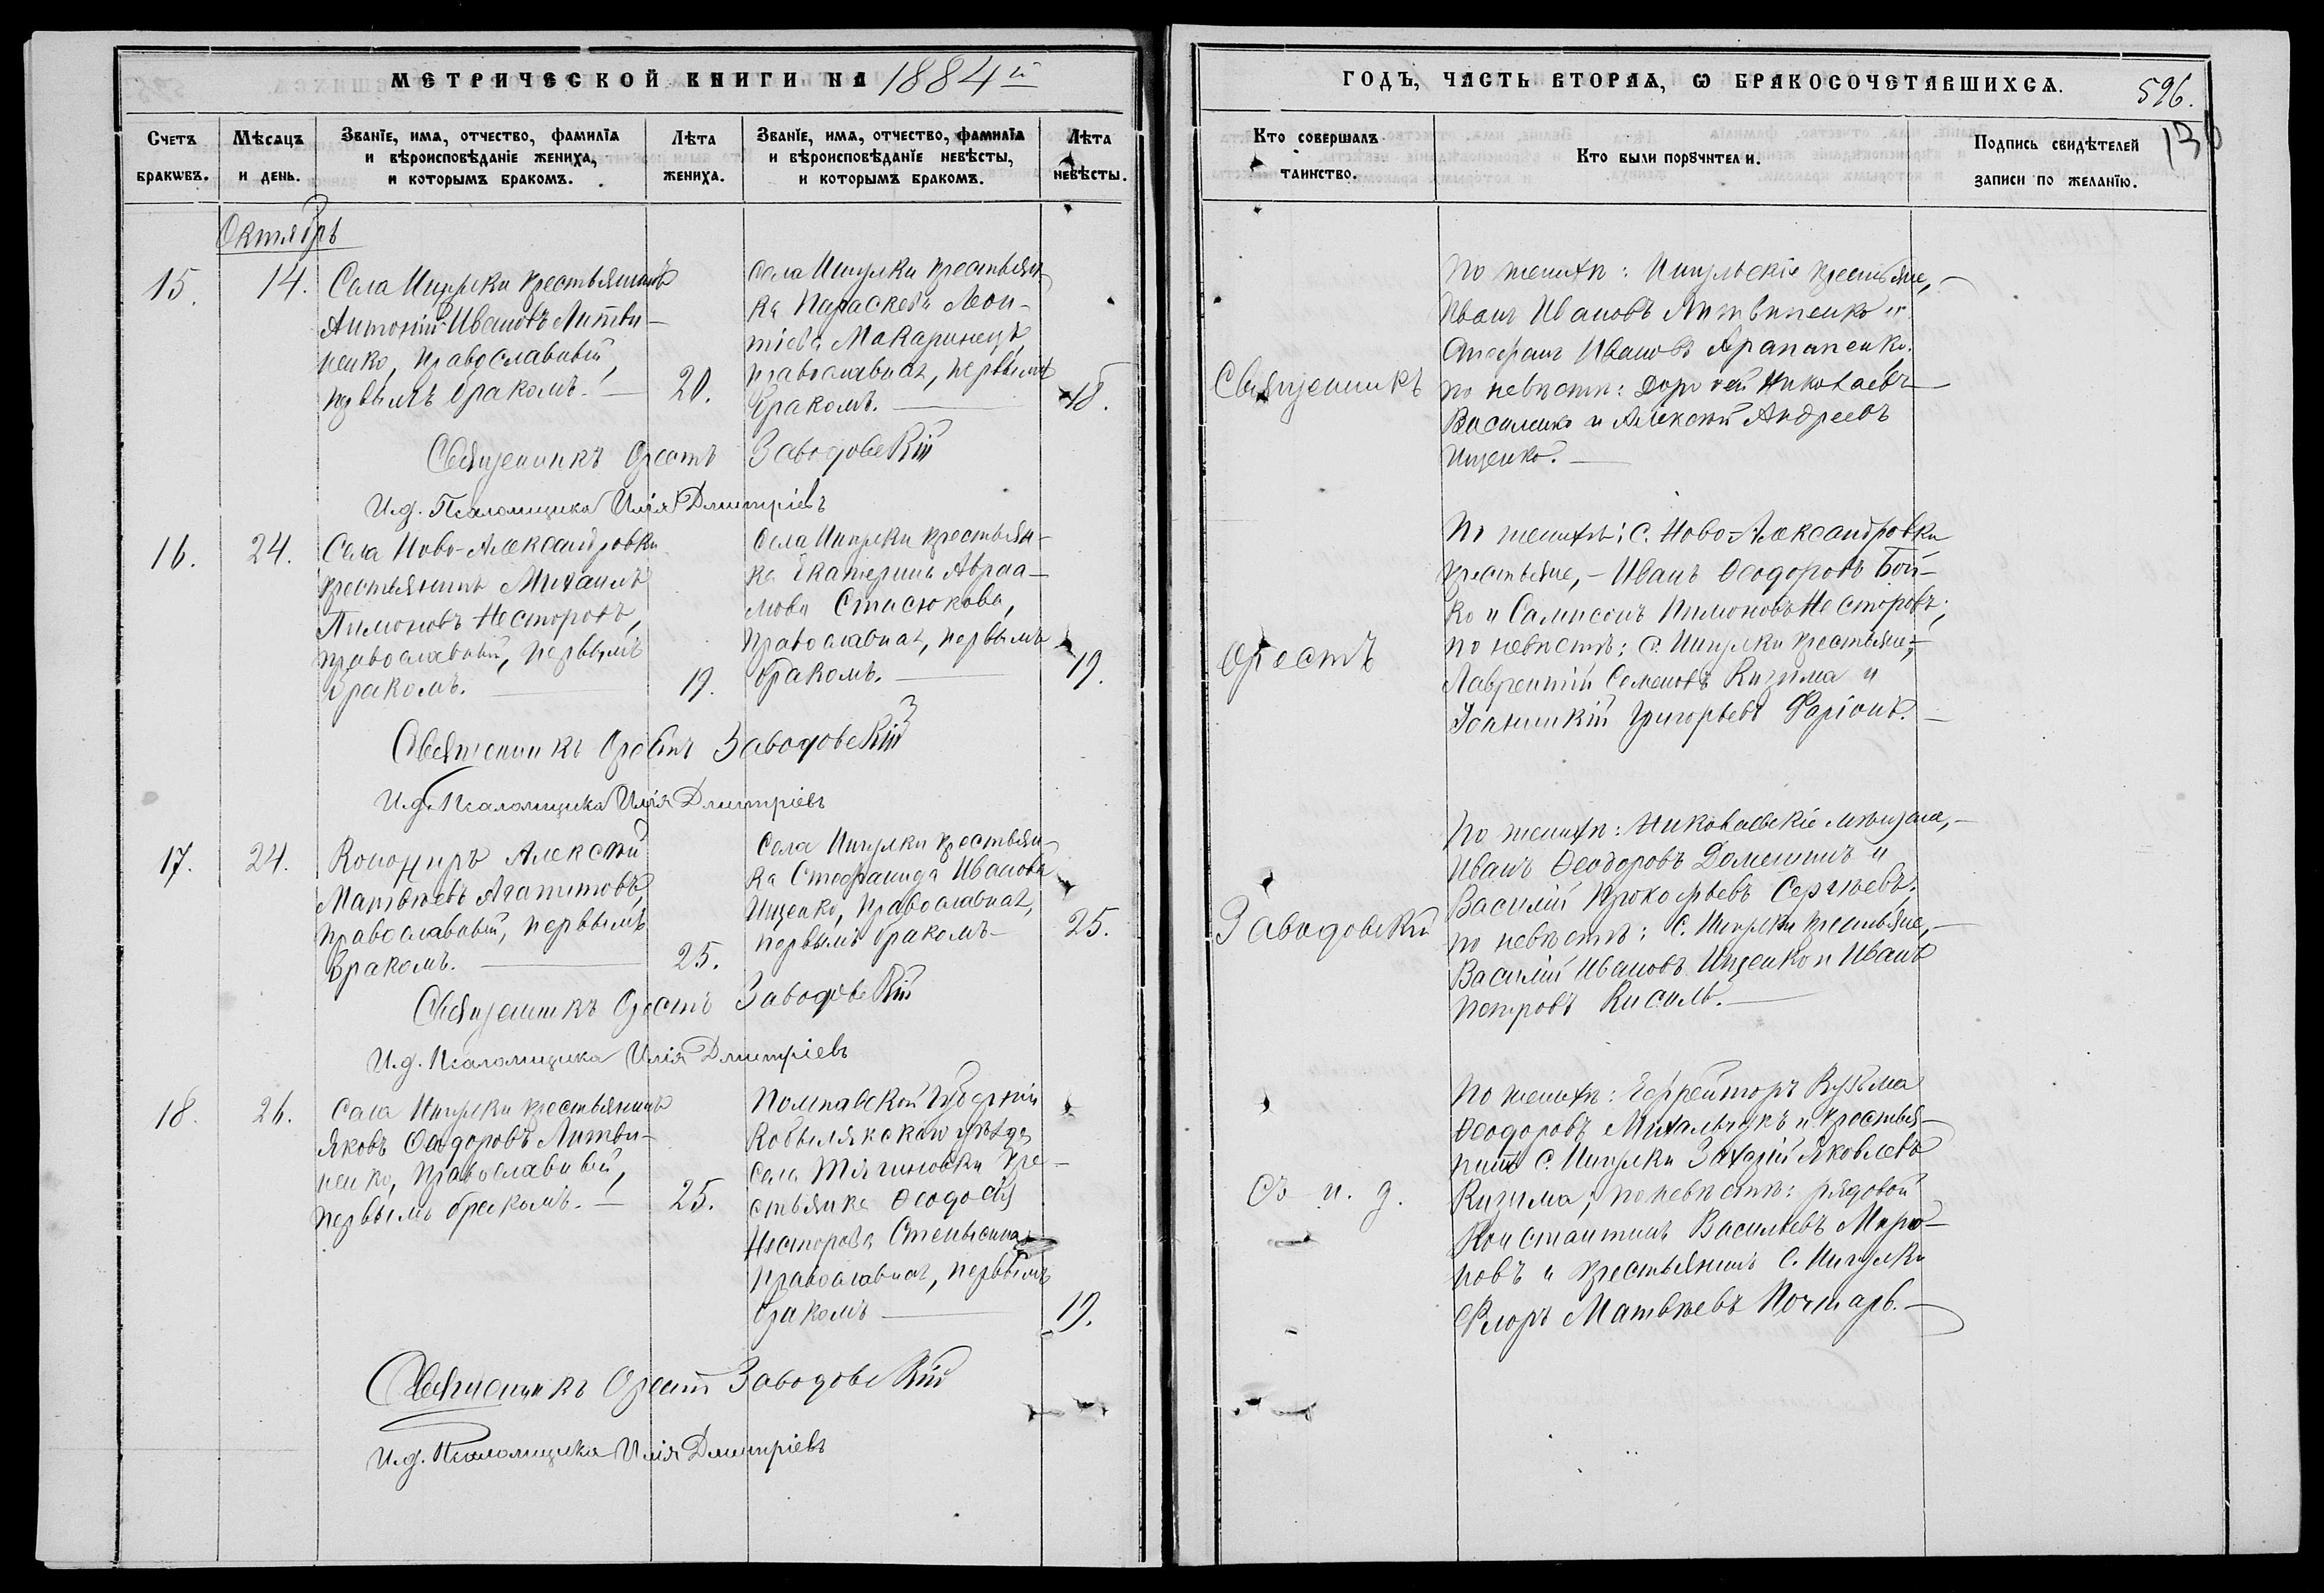 МЕТРИЧЕСКОЙ КНИГИ НА 1884й
Счетъ браковъ.
Мѣсяцъ и день.
Званіе, имя, отчество, фамилія
и вѣроисповѣданіе жениха,
и которымъ бракомъ.
Лѣта
жениха.
Званіе, имя, отчество, фамилія
и вѣроисповѣданіе невѣсты,
и которымъ бракомъ.
Лѣта
невѣсты.
Октябрь
15.
14.
Села Ингулки крестьянинъ
Антоній Ивановъ Литви-
ненко, православный,
первымъ бракомъ.
20.
Села Ингулки крестьян-
ка Параскева Леон-
тіева Макаринецъ,
православная, первымъ
бракомъ.
18.
Священникъ Орестъ Заводовскій
И.д. Псаломщика Илія Дмитріевъ
16.
24.
Села Ново-Александровки
крестьянинъ Михаилъ
Пимоновъ Несторовъ,
православный, первымъ
бракомъ.
19.
Села Ингулки крестьян-
ка Екатерина Авраа-
мова Стасюкова,
православная, первымъ
бракомъ.
19.
Священникъ Орестъ Заводовскій
И.д. Псаломщика Илія Дмитріевъ
17.
24.
Канониръ Алексѣй
Матвѣевъ Агапитовъ,
православный, первымъ
бракомъ.
25.
Села Ингулки крестьян-
ка Стефанида Иванова
Ищенко, православная,
первымъ бракомъ
25.
Священникъ Орестъ Заводовскій
И.д. Псаломщика Илія Дмитріевъ
18.
26.
Села Ингулки крестьянинъ
Яковъ Ѳеодоровъ Литви-
ненко, православный,
первымъ бракомъ.
25.
Полтавской губерніи
Кобылякскаго уѣзда
села кре-
стьянка Ѳеодосія
Несторова
православная, первымъ
бракомъ
19.
Священникъ Орестъ Заводовскій
И.д. Псаломщика Илія Дмитріевъ
ГОДЪ, ЧАСТЬ ВТОРАЯ, Ѡ БРАКОСОЧЕТАВШИХСЯ.
596.
136
Кто совершалъ
таинство.
Кто были поручители.
Подпись свидѣтелей
записи по желанію.
Священникъ
Орестъ
Заводовскій
съ и. д.
По женихѣ: Ингульскіе крестьяне,
Иванъ Ивановъ Литвиненко и
Стефанъ Ивановъ
по невѣстѣ: Дорофей Николаевъ
Василенко и Алексѣй Андреевъ
Ищенко.
По женихѣ: с. Ново-Александровки
крестьяне, - Иванъ Ѳеодоровъ Бой-
ко и Сампсонъ Пимоновъ Несторовъ;
по невѣстѣ: с. Ингулки крестьяне,
Лаврентій Семеновъ Кизима и
Іоанникій Григорьевъ Фаріонъ.
По женихѣ: Николаевскіе мѣщане,
Иванъ Ѳеодоровъ Домешинъ и
Василій Прокофьевъ Сергѣевъ,
по невѣстѣ: с. Ингулки крестьяне,
Василій Ивановъ Ищенко и Иванъ
Петровъ Кисиль.
По женихѣ: Ефрейторъ Кузьма
Ѳеодоровъ Михальчукъ и крестья-
нинъ с. Ингулки Захарій Яковлевъ
Кизима; по невѣстѣ: рядовой
Константинъ Васильевъ Миро-
новъ и крестьянинъ с. Ингулки
Флоръ Матвѣевъ Почтарь.